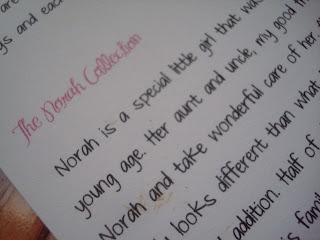 are
gs and eac
The Norah Collection
Norah is a special little girl that was
young age. Her aunt and uncle, my good fr
Norah and take wonderful care of her
looks different than what
addition. Half of
is famil